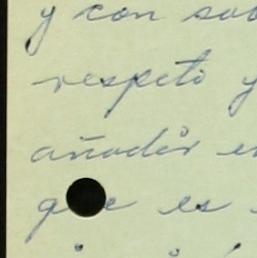 y con
respeto y
añadir
que es